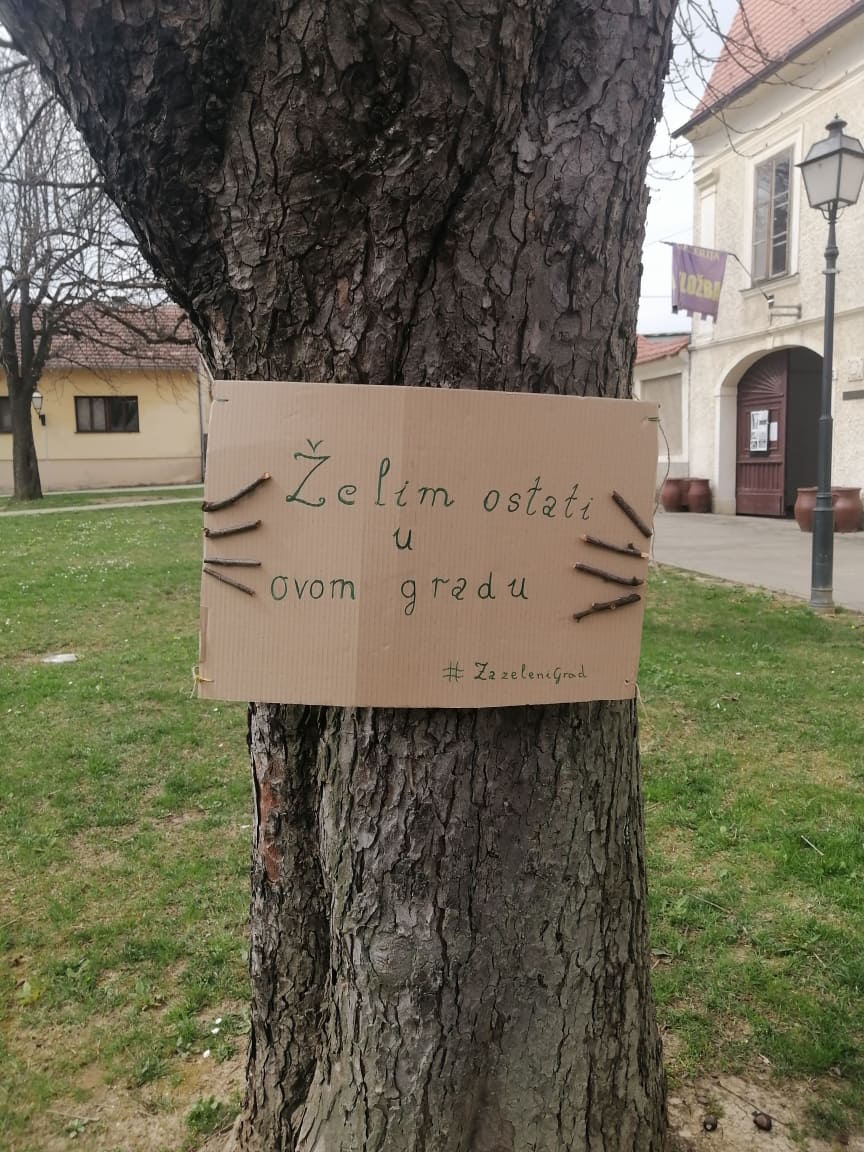 Želim ostati
u
ovom gradu
# ZazeleniGrad